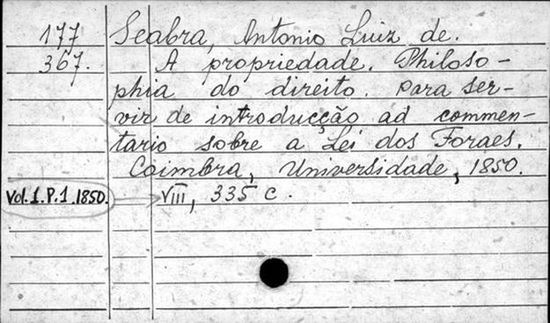 177 Seabra, Antonio Luiz de.
367. A propriedade. Philoso-
phia do direito. Para ser-
vir de introducção ad commen-
tario sobre a Lei dos Foraes.
Coimbra, Universidade, 1850.
Vol.1.P.1.1850. VIII, 335 c.